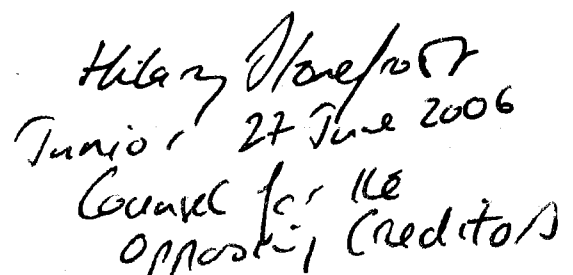 Hilary Stonefrost
Junior 27 June 2006
Counsel for the
Opposing Creditors